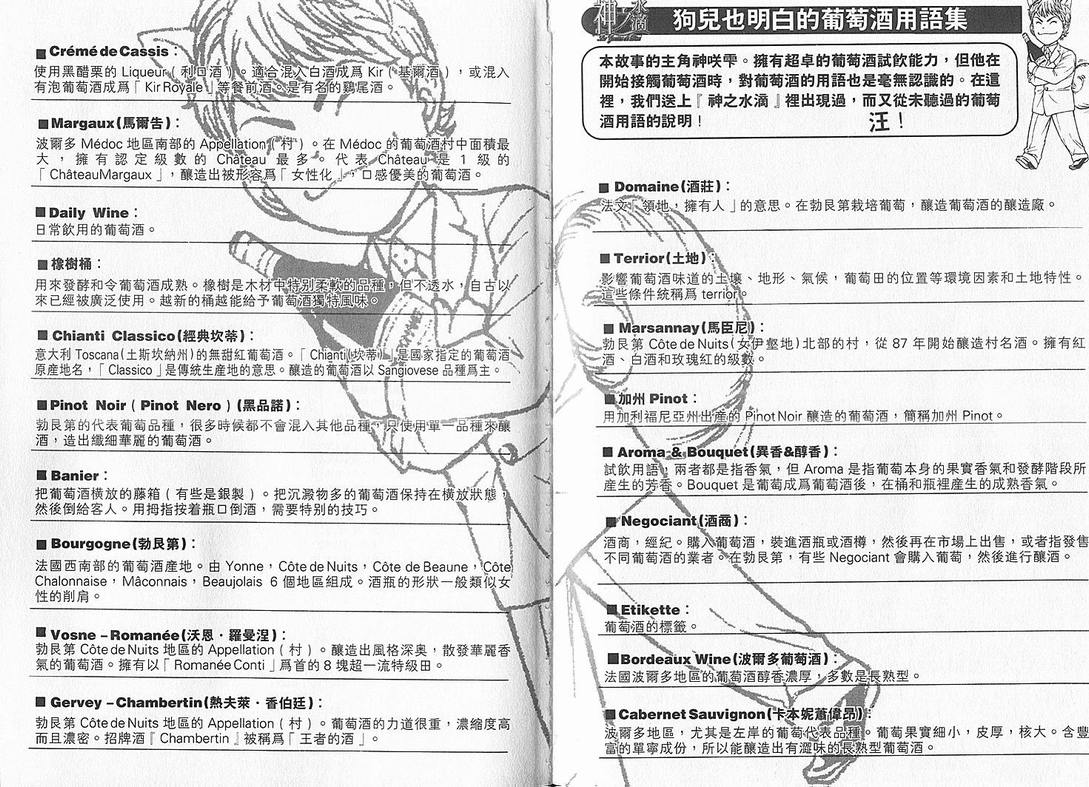 神之水滴
狗兒也明白的葡萄酒用語集
本故事的主角神咲雫。擁有超卓的葡萄酒試飲能力，但他在
開始接觸葡萄酒時，對葡萄酒的用語也是毫無認識的。在這
裡，我們送上『神之水滴』裡出現過，而又從未聽過的葡萄
酒用語的說明！
汪！
■ Domaine(酒莊)：
法文「領地，擁有人」的意思。在勃艮第栽培葡萄，釀造葡萄酒的釀造廠。
■ Terrior(土地)：
影響葡萄酒味道的土壤、地形、氣候，葡萄田的位置等環境因素和土地特性。
這些條件統稱爲 terrior。
■ Marsannay(馬臣尼)：
勃艮第 Côte de Nuits(女伊壑地)北部的村，從 87 年開始釀造村名酒。擁有紅
酒、白酒和玫瑰紅的級數。
■ 加州 Pinot：
用加利福尼亞州出産的 Pinot Noir 釀造的葡萄酒，簡稱加州 Pinot。
■ Aroma & Bouquet(異香&醇香)：
試飲用語，兩者都是指香氣，但 Aroma 是指葡萄本身的果實香氣和發酵階段所
産生的芳香。Bouquet 是葡成爲葡萄酒後，在桶和瓶裡産生的成熟香氣。
■ Negociant(酒商)：
酒商，經紀。購入葡萄酒，裝進酒瓶或酒樽，然後再在市場上出售，或者指發售
不同葡萄酒的業者。在勃艮第，有些 Negociant 會購入葡萄，然後進行釀酒。
■ Etikette：
葡萄酒的標籤。
■Bordeaux Wine(波爾多葡萄酒)：
法國波爾多地區的葡萄酒醇香濃厚，多數是長熟型。
■ Cabernet Sauvignon(卡本妮蕭偉昂)：
波爾多地區，尤其是左岸的葡萄代表品種。葡萄果實細小，皮厚，核大。含豐
富的單寧成份，所以能釀造出有澀味的長熟型葡萄酒。
■ Crémé de Cassis：
使用黑醋栗的 Liqueur ( 利口酒 )。適合混入白酒成爲 Kir ( 基爾酒 )，或混入
有泡葡萄酒成爲「 Kir Royale 」等餐前酒。是有名的鷄尾酒。
■ Margaux(馬爾告)：
波爾多 Médoc 地區南部的 Appellation ( 村 )。在 Médoc 的葡萄酒村中面積最
大，擁有認定級數的 Château 最多。代表 Château 是 1 級的
「 ChâteauMargaux 」，釀造出被形容爲「女性化」，口感優美的葡萄酒。
■ Daily Wine：
日常飲用的葡萄酒。
■ 橡樹桶：
用來發酵和令葡萄酒成熟。橡樹是木材中特別柔軟的品種，但不透水，自古以
來已經被廣泛使用。越新的桶越能給予葡萄酒獨特風味。
■ Chianti Classico(經典坎蒂)：
意大利 Toscana(土斯坎納州)的無甜紅葡萄酒。「 Chianti(坎蒂) 」是國家指定的葡萄酒
原産地名，「 Classico 」是傳統生産地的意思。釀造的葡萄酒以 Sangiovese 品種爲主。
■ Pinot Noir ( Pinot Nero ) (黑品諾)：
勃艮第的代表葡萄品種，很多時候都不會混入其他品種，只使用單一品種來釀
酒，造出纖細華麗的葡萄酒。
■ Banier：
把葡萄酒橫放的藤箱 ( 有些是銀製 )。把沉澱物多的葡萄酒保持在橫放狀態，
然後倒給客人。用拇指按着瓶口倒酒，需要特別的技巧。
■ Bourgogne(勃艮第)：
法國西南部的葡萄酒産地。由 Yonne，Côte de Nuits，Côte de Beaune，Côte
Chalonnaise，Mâconnais，Beaujolais 6 個地區組成。酒瓶的形狀一般類似女
性的削肩。
■ Vosne – Romanée(沃恩・羅曼涅)：
勃艮第 Côte de Nuits 地區的 Appellation ( 村 )。釀造出風格深奥，散發華麗香
氣的葡萄酒。擁有以「 Romanée Conti 」爲首的 8 塊超一流特級田。
■ Gervey – Chambertin(熱夫萊・香伯廷)：
勃艮第 Côte de Nuits 地區的 Appellation ( 村 )。葡萄酒的力道很重，濃縮度高
而且濃密。招牌酒『 Chambertin 』被稱爲「王者的酒」。